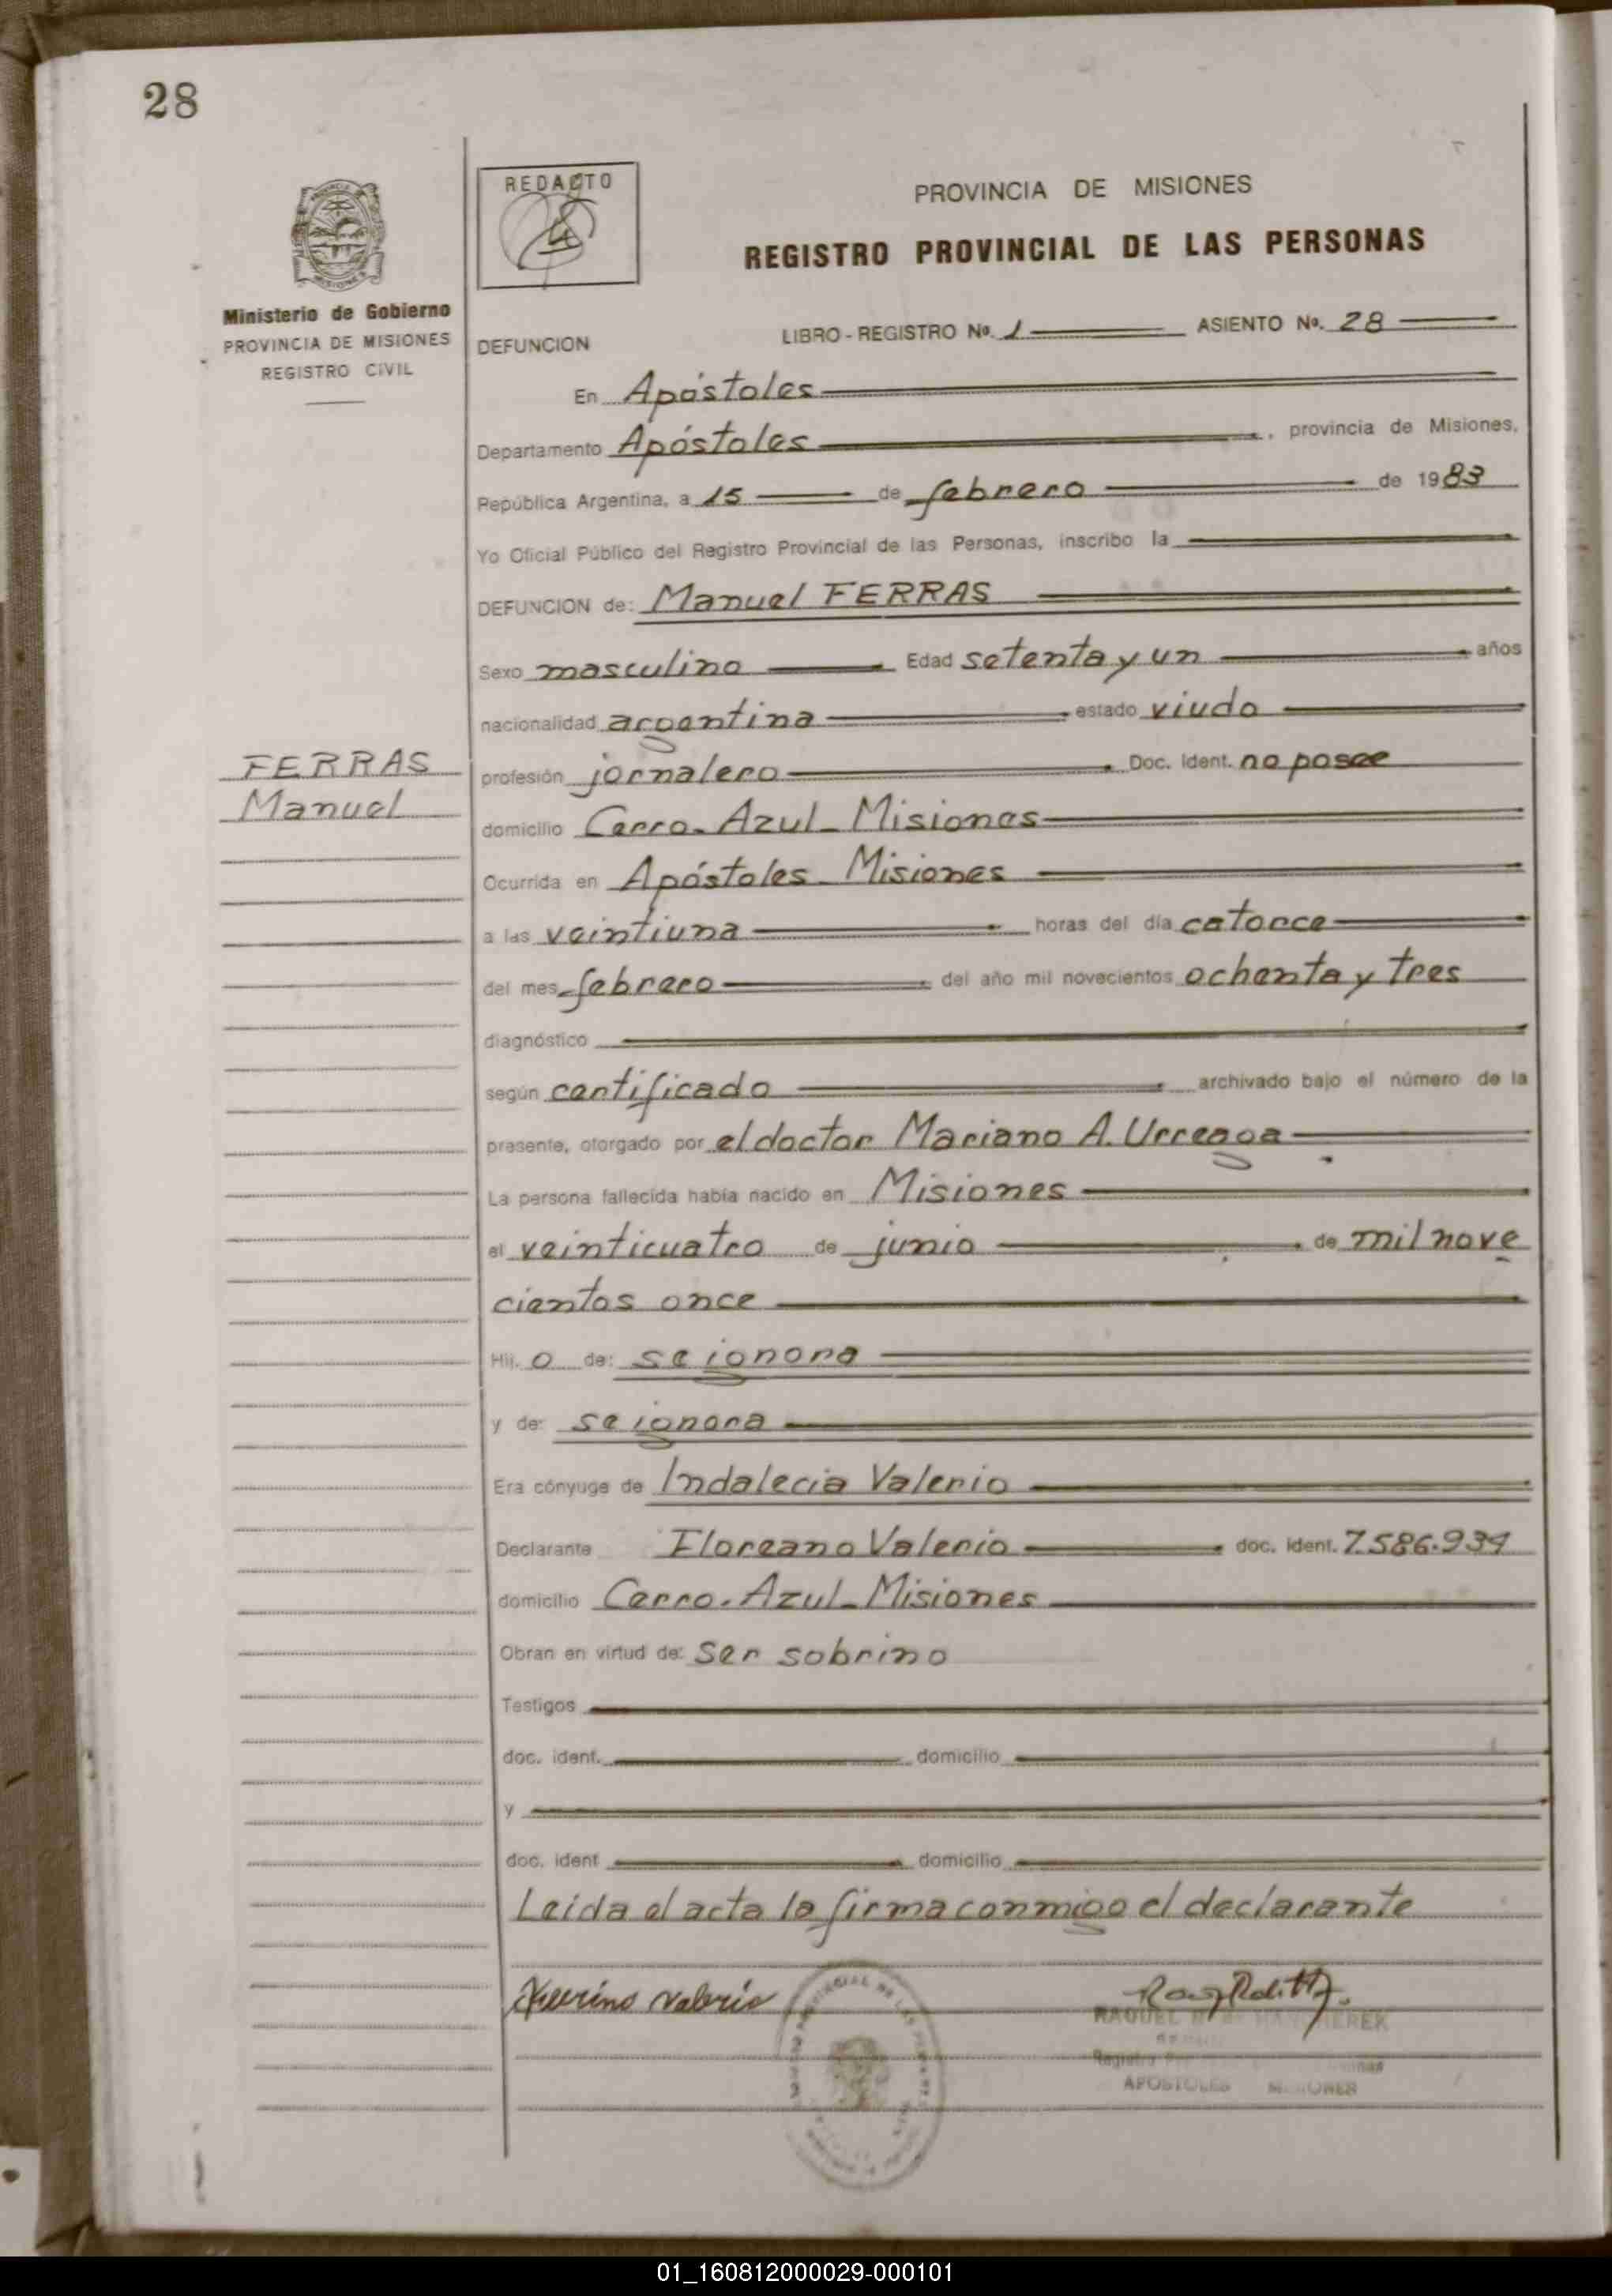 28
REDACTO
PROVINCIA DE MISIONES
REGISTRO PROVINCIAL DE LAS PERSONAS
Ministerio de Gobierno
PROVINCIA DE MISIONES
REGISTRO CIVIL
DEFUNCION LIBRO - REGISTRO Nº. 1 ASIENTO Nº. 28
En Apóstoles
Departamento Apóstoles, provincia de Misiones,
República Argentina, a 15 de febrero de 1983
Yo Oficial Público del Registro Provincial de las Personas, inscribo la
DEFUNCION de: Manuel FERRAS
Sexo masculino Edad setenta y un años
nacionalidad argentina estado viudo
FERRAS
Manuel
profesión jornalero Doc. Ident. no posee
domicilio Cerro-Azul-Misiones
Ocurrida en Apóstoles-Misiones
a las veintiuna horas del día catorce
del mes febrero del año mil novecientos ochenta y tres
diagnóstico
según certificado archivado bajo el número de la
presente, otorgado por el doctor Mariano A. Urreaga
La persona fallecida había nacido en Misiones
el veinticuatro de junio de mil nove
cientos once
Hij o de: se ignora
y de: se ignora
Era cónyuge de Indalecia Valerio
Declarante Floreano Valerio doc. ident. 7.586.934
domicilio Cerro-Azul-Misiones
Obran en virtud de: ser sobrino
Testigos
doc. ident. domicilio
y
doc. ident domicilio
Leída el acta la firma conmigo el declarante
valerio
RAQUEL
APOSTOLES MISIONES
01_160812000029-000101